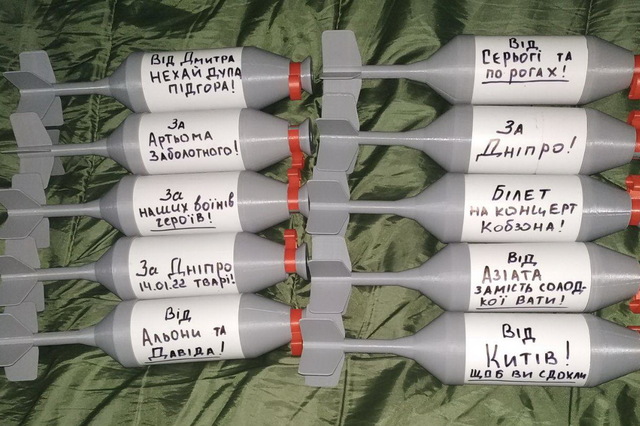 Від Дмитра
Нехай дупа
підгора!
За
Артьома
Заболотного!
За
наших воїнів
героїв!
За Дніпро
14.01.22 тварі!
Від
Альони та
Давіда!
Від
Сєрьогі та
по рогах!
За
Дніпро!
Білет
на концерт
Кобзона!
Від
Азіата
замість солод-
кої вати!
Від
Китів!
щоб ви сдохли